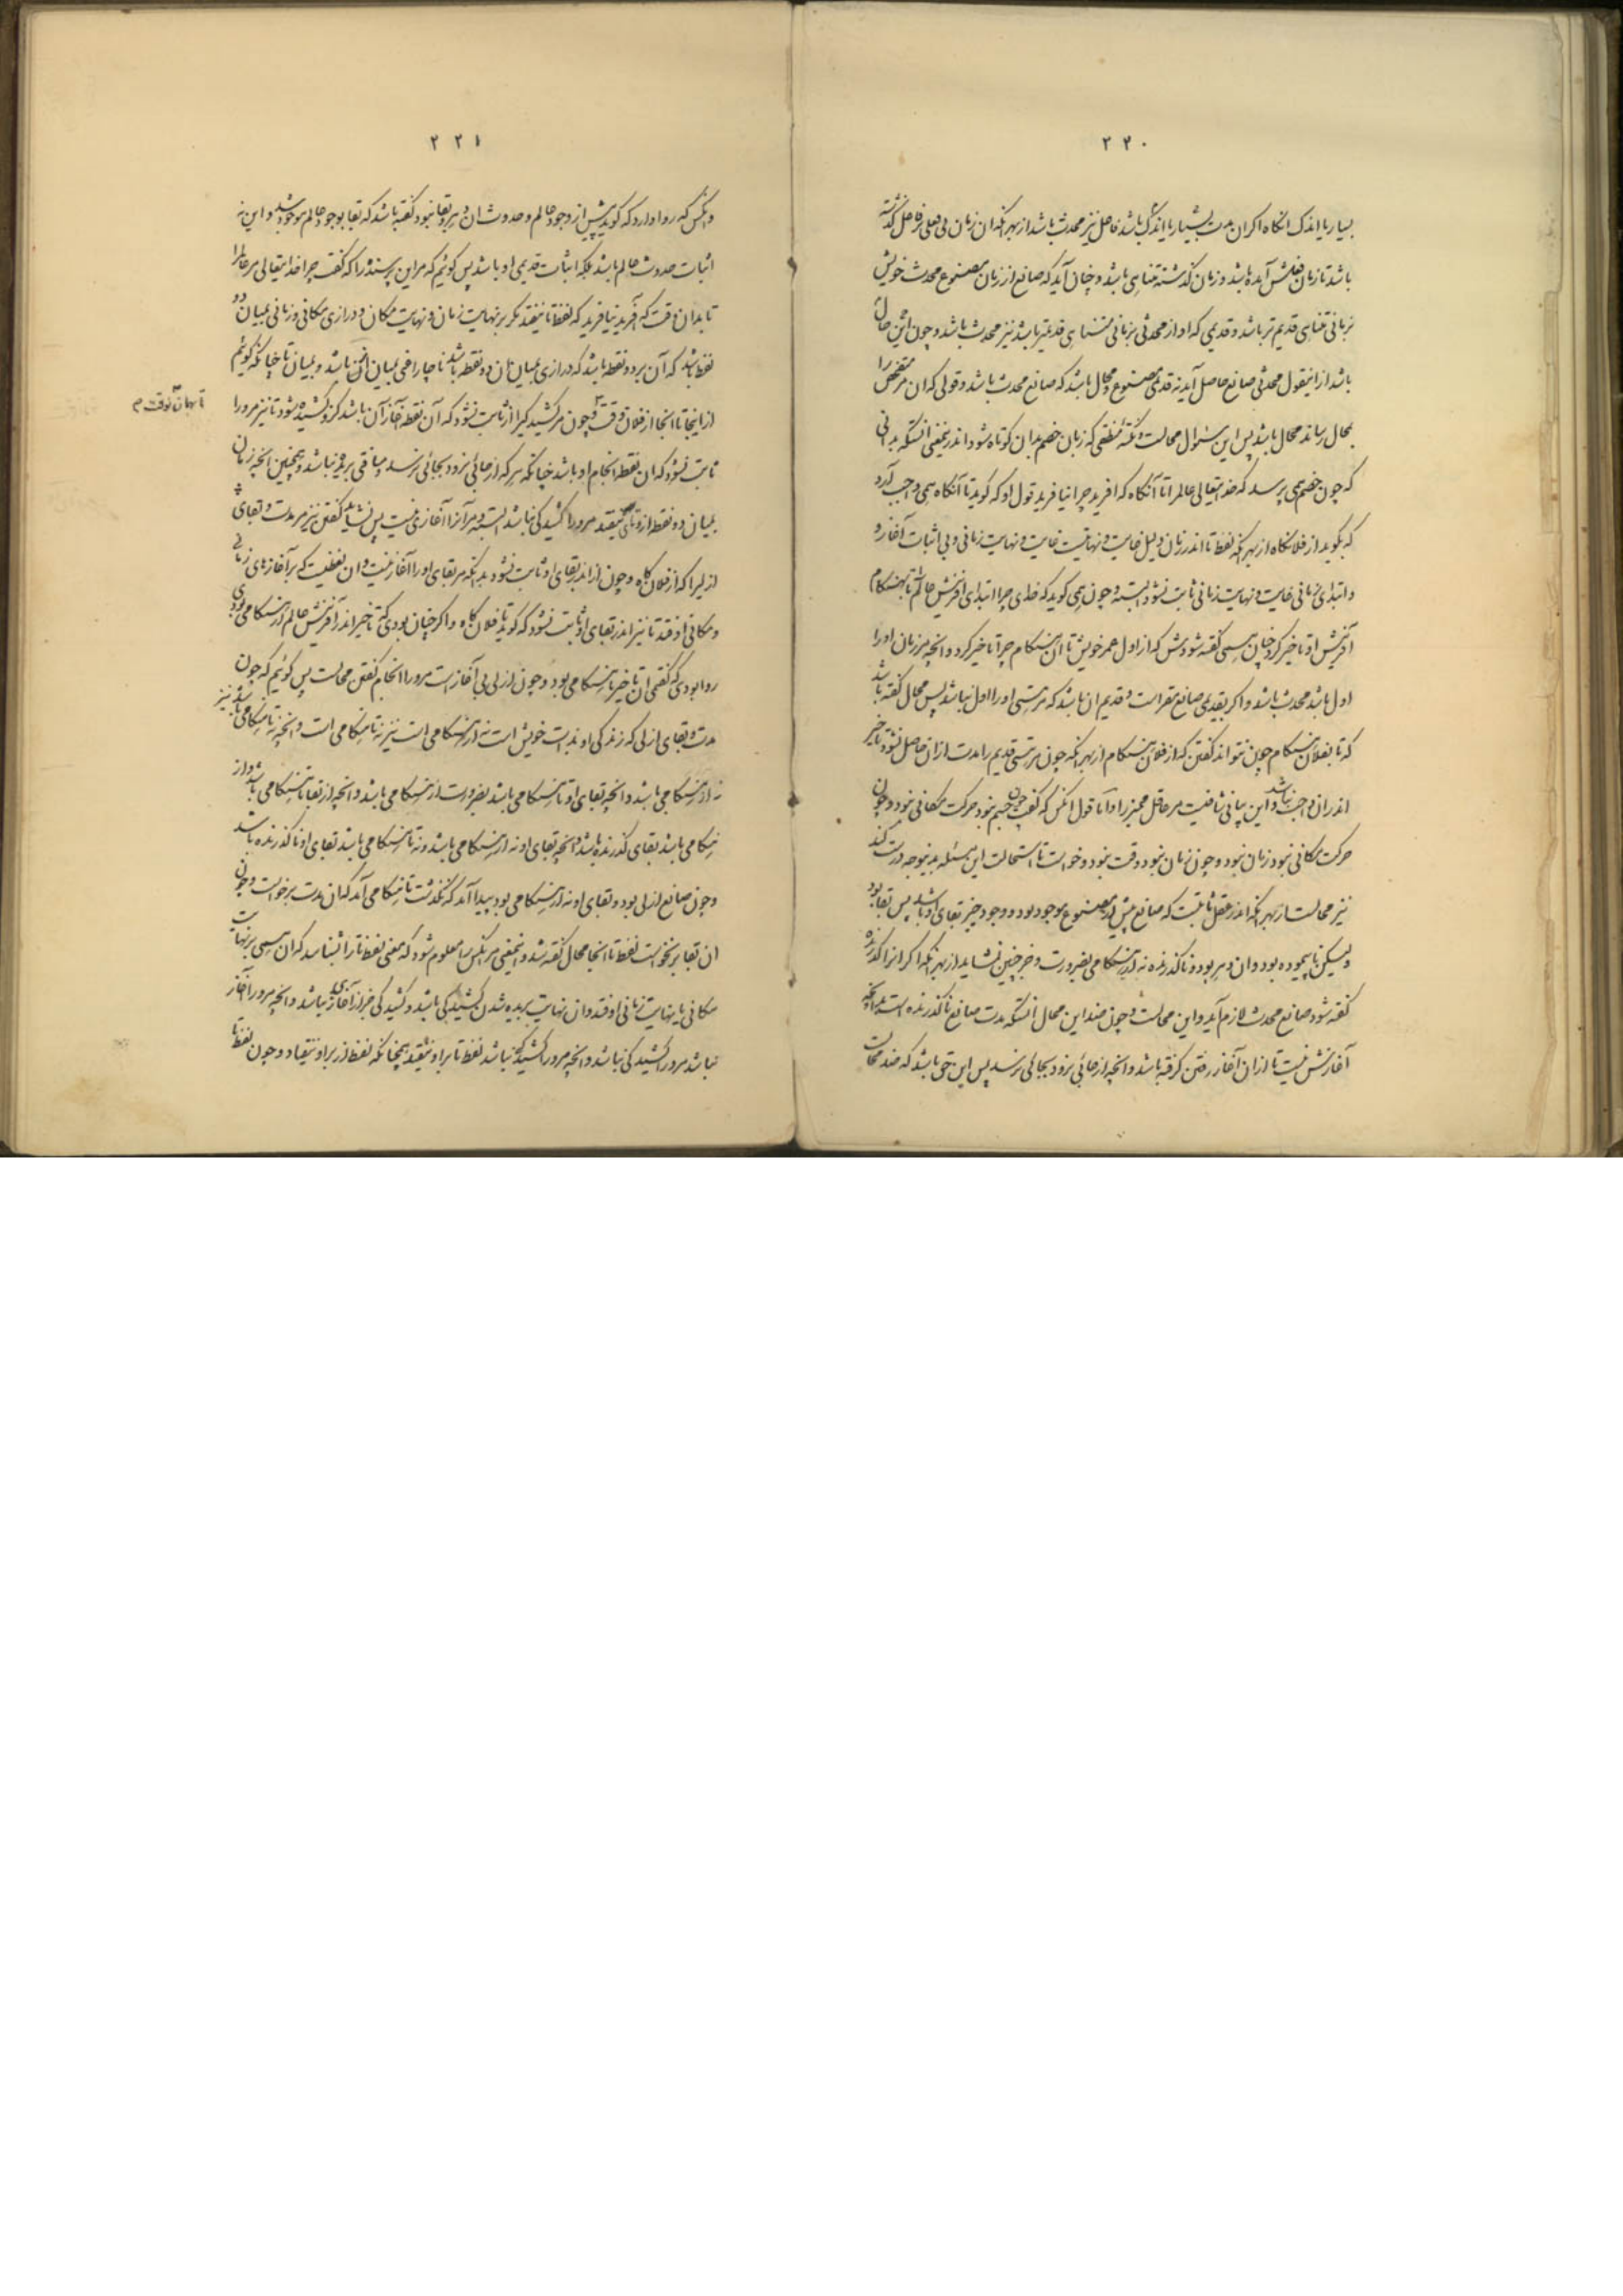 ۲۲۰
بسیار یا اندک انگاه اکر ان مدت بسیار یا اندک باشد فاصل نیز محدث باشد از بهر انکه ان زمان بی فعلی بر فاصل گذشته
باشد تا زمان فعلش آمده باشد و زمان گذشته متناهی باشد و چنان آید که صانع از زمان مصنوع محدث خویش
بزمانی متناهی قدیم تر باشد و قدیمی که او از محدثی بزمانی متناهی قدیمتر باشد نیز محدث باشد و چون این حال
باشد از اینقول محدثی صانع حاصل آید نه قدمی مصنوع و محال باشد که صانع محدث باشد و قولی که ان مر متفحص را
بمحال رساند محال باشد پس این سئوال محالست و نکته منطقی که زبان خصم بدان کوتاه شود اندرینمعنی انستکه بدانی
که چون خصم همی پرسد که خدایتعالی عالمرا تا آنگاه که افرید چرا نیافرید قول او که گوید تا آنگاه همی واجب آرد
که بگوید از فلانگاه از بهر انکه لفظ تا اندر زمان دلیل غایت و نهایتست غایت و نهایت زمانی و بی اثبات آغاز و
و ابتدای زمانی غایت و نهایت زمانی ثابت نشود البته و چون همی گوید که خدای چرا ابتدای افرینش عالم تا بهنگام
آفرینش او تاخیر کرد چنان همی گفته شود ش که از اول عمر خویش تا ان هنگام چرا تاخیر کرد و انچه مر زمان او را
اول باشد محدث باشد و اکر بقدیمی صانع مقر است و قدیم ان باشد که مر هستی او را اول نباشد پس محال گفته باشد
که تا بفلان هنگام چون نتواند گفتن که از فلان هنگام از بهر انکه چون مر هستی قدیم را مدت از ان حاصل نشود تاخیر
اندران واجب نباشد و این بیانی شافیست مر عاقل ممیز را و اما قول انکس که گفت چون جسم نبود حرکت مکانی نبود و چون
حرکت مکانی نبود زمان نبود و چون زمان نبود وقت نبود و خواست تا استحالت این مسئله بدینوجه درست کند
نیز محالست از بهر انکه اندر عقل ثابتست که صانع پیش از مصنوع موجود بود و وجود چیز بقای او باشد پس بقا بود
ولیکن ناپیموده بود و ان دهر بود و ناگذرنده نه از هنگامی بضرورت و جز چنین نشاید از بهر انکه اکر انرا گذرنده
گفته شود صانع محدث لازم آید و این محالست و چون ضد این محال انستکه مدت صانع ناگذرنده است بدانچه
آغازش نیست تا از ان آغاز رفتن گرفته باشد و انچه از جائی نرود بجائی نرسد پس این حق باشد که ضد محالست
۲۲۱
و انکس که روا دارد که گوید پیش از وجود عالم و حدوث ان دهر و بقا نبود گفته باشد که بقا بوجود عالم موجود شد و این نه
اثبات حدوث عالم باشد بلکه اثبات قدیمی او باشد پس گوئیم که مر این پرسنده را که گفت چرا خدایتعالی مر عالم را
تا بدان وقت که آفرید نیافرید که لفظ تا نیفتد مگر بر نهایت زمان و نهایت مکان و درازی مکانی و زمانی بمیان دو
نقطه باشد که آن بر دو نقطه باشد که درازی بمیان آن دو نقطه باشد ناچار افی بمیان انمن باشد و بمیان تا چنانکه گوئیم
از اینجا تا انجا از فلان وقت و چون مر کشیدگی را از ثابت نشود که آن نقطه آغاز آن باشد کزو کشیده شود تا نیز مر و را
تا بهمان وقت م
ثابت نشود که ان نقطه انجام او باشد چنانکه هر که از جائی نرود بجائی نرسد و مسافتی بریده نباشد و همچنین انچه زمان
بمیان دو نقطه از و تا نیفتد مر و را کشیدگی نباشد البته و مر آنرا آغازی نیست پس نشاید گفتن نیز مر مدت و بقای
ازلیرا که از فلان گاه و چون از اندر بقای او ثابت نشود بدانکه مر بقای او را آغاز نیست و ان لفظیست که بر آغازهای زمانی
و مکانی اوفتد تا نیز اندر بقای او ثابت نشود که گوید تا فلان گاه و اکر چنان بودی که تاخیر اندر آفرینش عالم از هنگامی بودی
روا بودی که گفتمی ان تاخیر تا هنگامی بود و چون ازلی بی آغاز است مر و را انجام گفتن محالست پس گوئیم که چون
مدت و بقای ازلی که زندگی او بذات خویش است نه از هنگامی است نیز نه تا هنگامی است و انچه نه تا هنگامی باشد نیز
نه از هنگامی باشد و انچه بقای او تا هنگامی باشد بضرورت از هنگامی باشد و انچه از بقا تا هنگامی باشد و از
هنگامی باشد بقای گذرنده باشد و انچه بقای او نه از هنگامی باشد و نه تا هنگامی باشد بقای او ناگذرنده باشد
و چون صانع ازلی بود و بقای او نه از هنگامی بود پیدا آمد که نگذشت تا هنگامی آمد که ان مدت برخواست و چون
ان بقا برنخواست لفظ تا انجا محال گفته شد و اینمعنی مر انکس را معلوم شود که معنی لفظ تا را بشناسد که ان همی بر نهایت
مکانی یا نهایت زمانی اوفتد و ان نهایت بریده شدن کشیدگی باشد و کشیدگی جز از آغازی نباشد و انچه مر و را آغاز
نباشد مر و را کشیدگی نباشد و انچه مر و را کشیدگی نباشد لفظ تا بر او نیفتد همچنانکه لفظ از بر او نیفتاد و چون لفظ تا